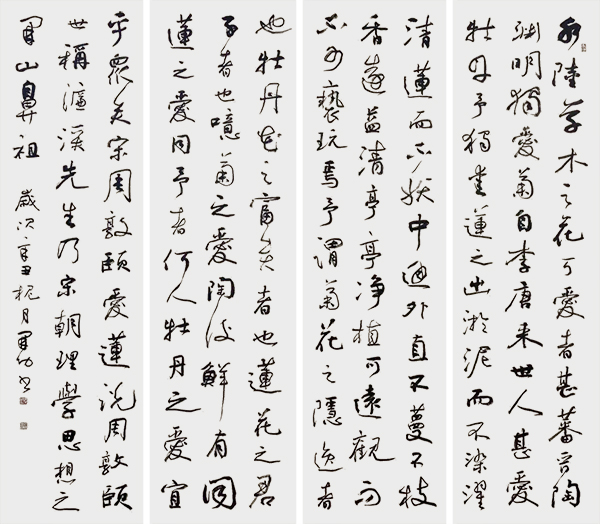 水陸草木之花可愛者甚蕃晉陶
淵明獨愛菊自李唐來世人甚愛
牡丹予獨愛蓮之出淤泥而不染濯
清蓮而不妖中通外直不蔓不枝
香遠益清亭亭净植可遠觀而
不可褻玩焉予謂菊花之隱逸者
也牡丹花之富貴者也蓮花之君
子者也噫菊之愛陶後鮮有聞
蓮之愛同予者何人牡丹之愛宜
乎衆矣宋周敦頤愛蓮説周敦頤
世稱濂溪先生乃宋朝理學思想之
開山鼻祖 歲次辛丑桃月書